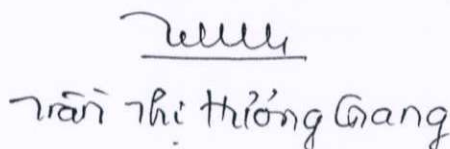 Trần Thị Hương Giang